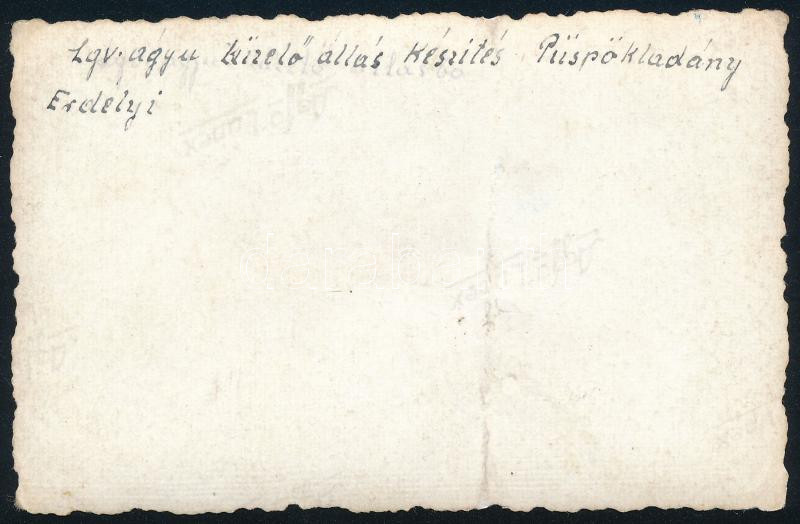 Lgv. ágyu tüzelő állás készítés Püspökladány
Erdélyi